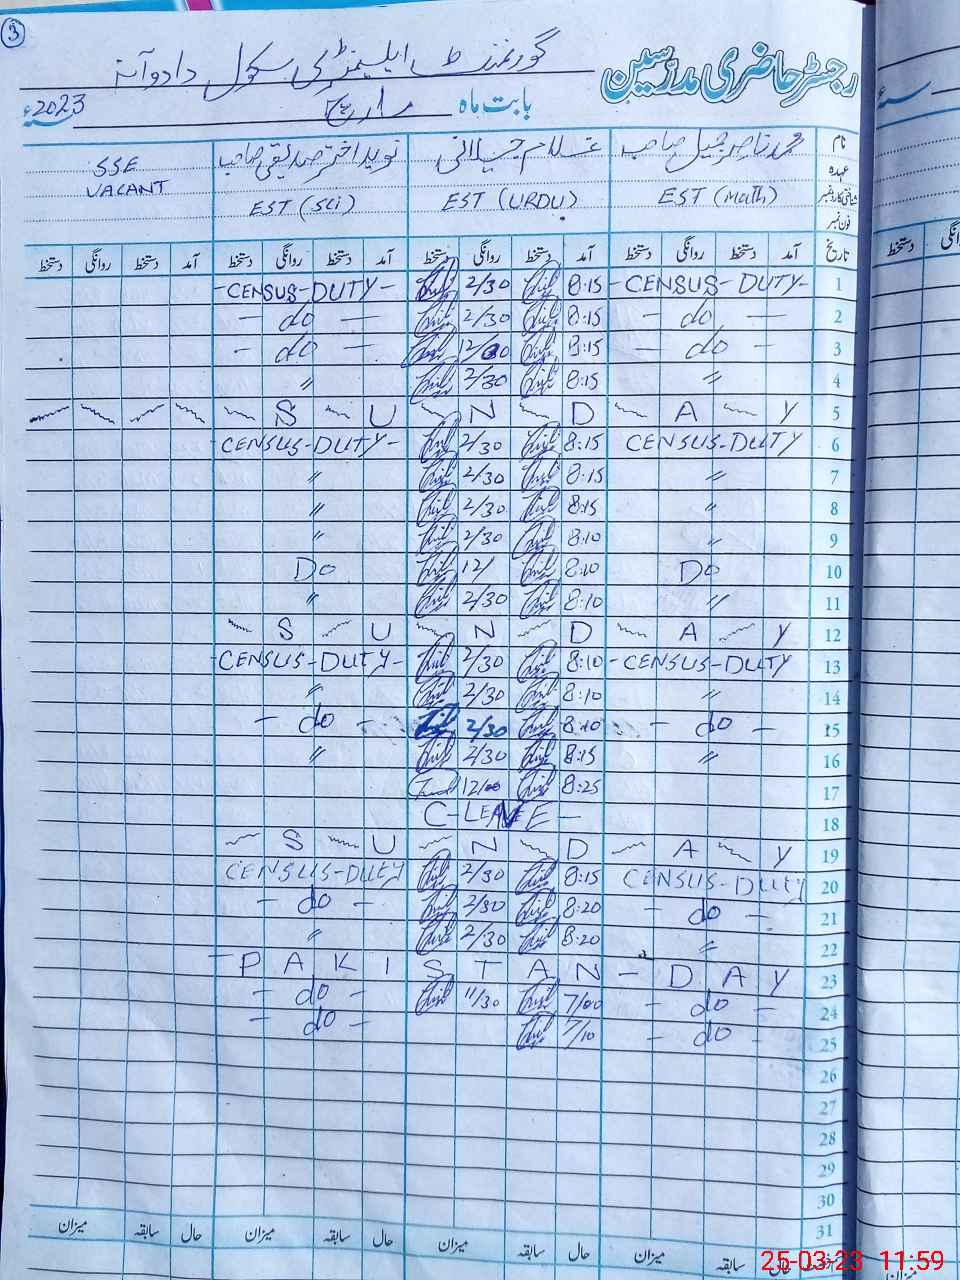 3
گورنمنٹ ایلیمنٹری سکول دادوآنہ
رجسٹر حاضری مدرسین
بابت ماہ مارچ 2023ء
نام محمد ناصر جمیل صاحب غلام جیلانی نوید اختر صدیقی صاحب SSE VACANT
عہدہ
شناختی کارڈ نمبر EST (Math) EST (URDU) EST (Sci)
فون نمبر
تاریخ آمد دستخط روانگی دستخط آمد دستخط روانگی دستخط آمد دستخط روانگی دستخط آمد دستخط روانگی دستخط
-CENSUS-DUTY- 2/30 8:15 -CENSUS-DUTY- 1
- do - 2/30 8:15 - do - 2
- do - 12/00 8:15 - do - 3
〃 2/30 8:15 〃 4
S U N D A Y 5
CENSUS-DUTY- 2/30 8:15 CENSUS-DUTY 6
〃 2/30 8:15 〃 7
〃 2/30 8:15 〃 8
〃 2/30 8:10 〃 9
Do 12/ 8:10 Do 10
〃 2/30 8:10 〃 11
S U N D A Y 12
-CENSUS-DUTY- 2/30 8:10 -CENSUS-DUTY 13
〃 2/30 8:10 〃 14
- do - 2/30 8:10 - do - 15
〃 2/30 8:15 〃 16
12/00 8:25 17
C-LEAVE- 18
S U N D A Y 19
CENSUS-DUTY 2/30 8:15 CENSUS-DUTY 20
- do - 2/30 8:20 - do - 21
〃 2/30 8:20 〃 22
-PAKISTAN-DAY 23
- do - 11/30 7/00 - do - 24
- do - 7/10 - do - 25
26
27
28
29
30
31
حال سابقہ میزان حال سابقہ میزان حال سابقہ میزان حال سابقہ میزان
25-03-23 11:59